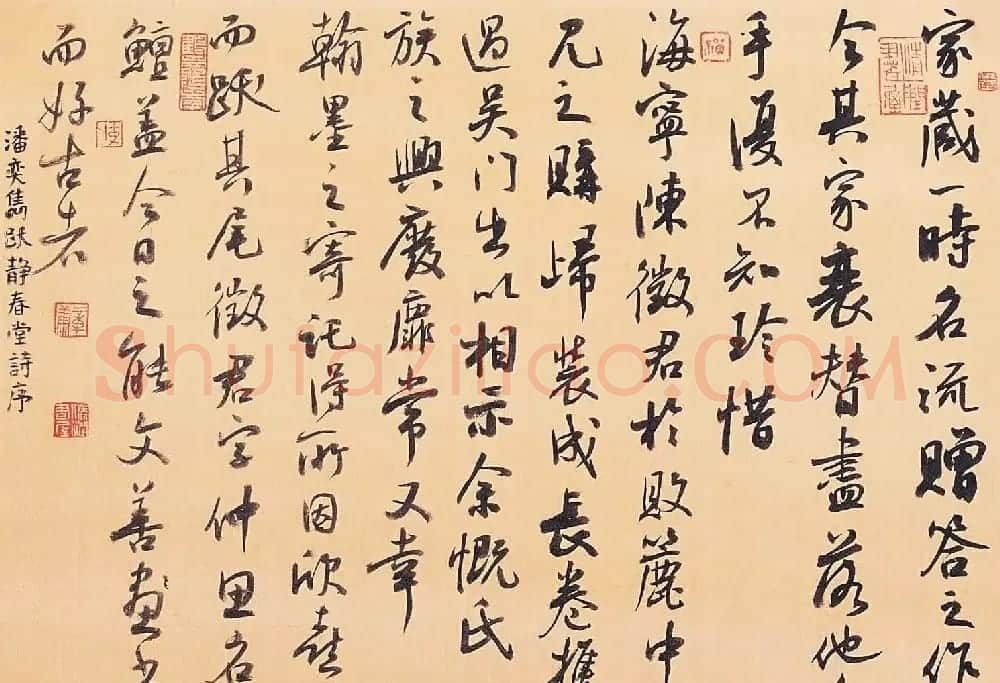 家藏一時名流贈答之作
今其家衰替盡落他
手漫不知珍惜
海寧陳徵君於敗簏中
見之購歸裝成長卷攜
過吴门出以相示余慨氏
族之興廢靡常又幸
翰墨之寄託得所因欣喜
而跋其尾徵君字仲思名
鱣盖今日之能文善畫
而好古者
潘奕雋跋静春堂詩序
Shufaziliao.COM